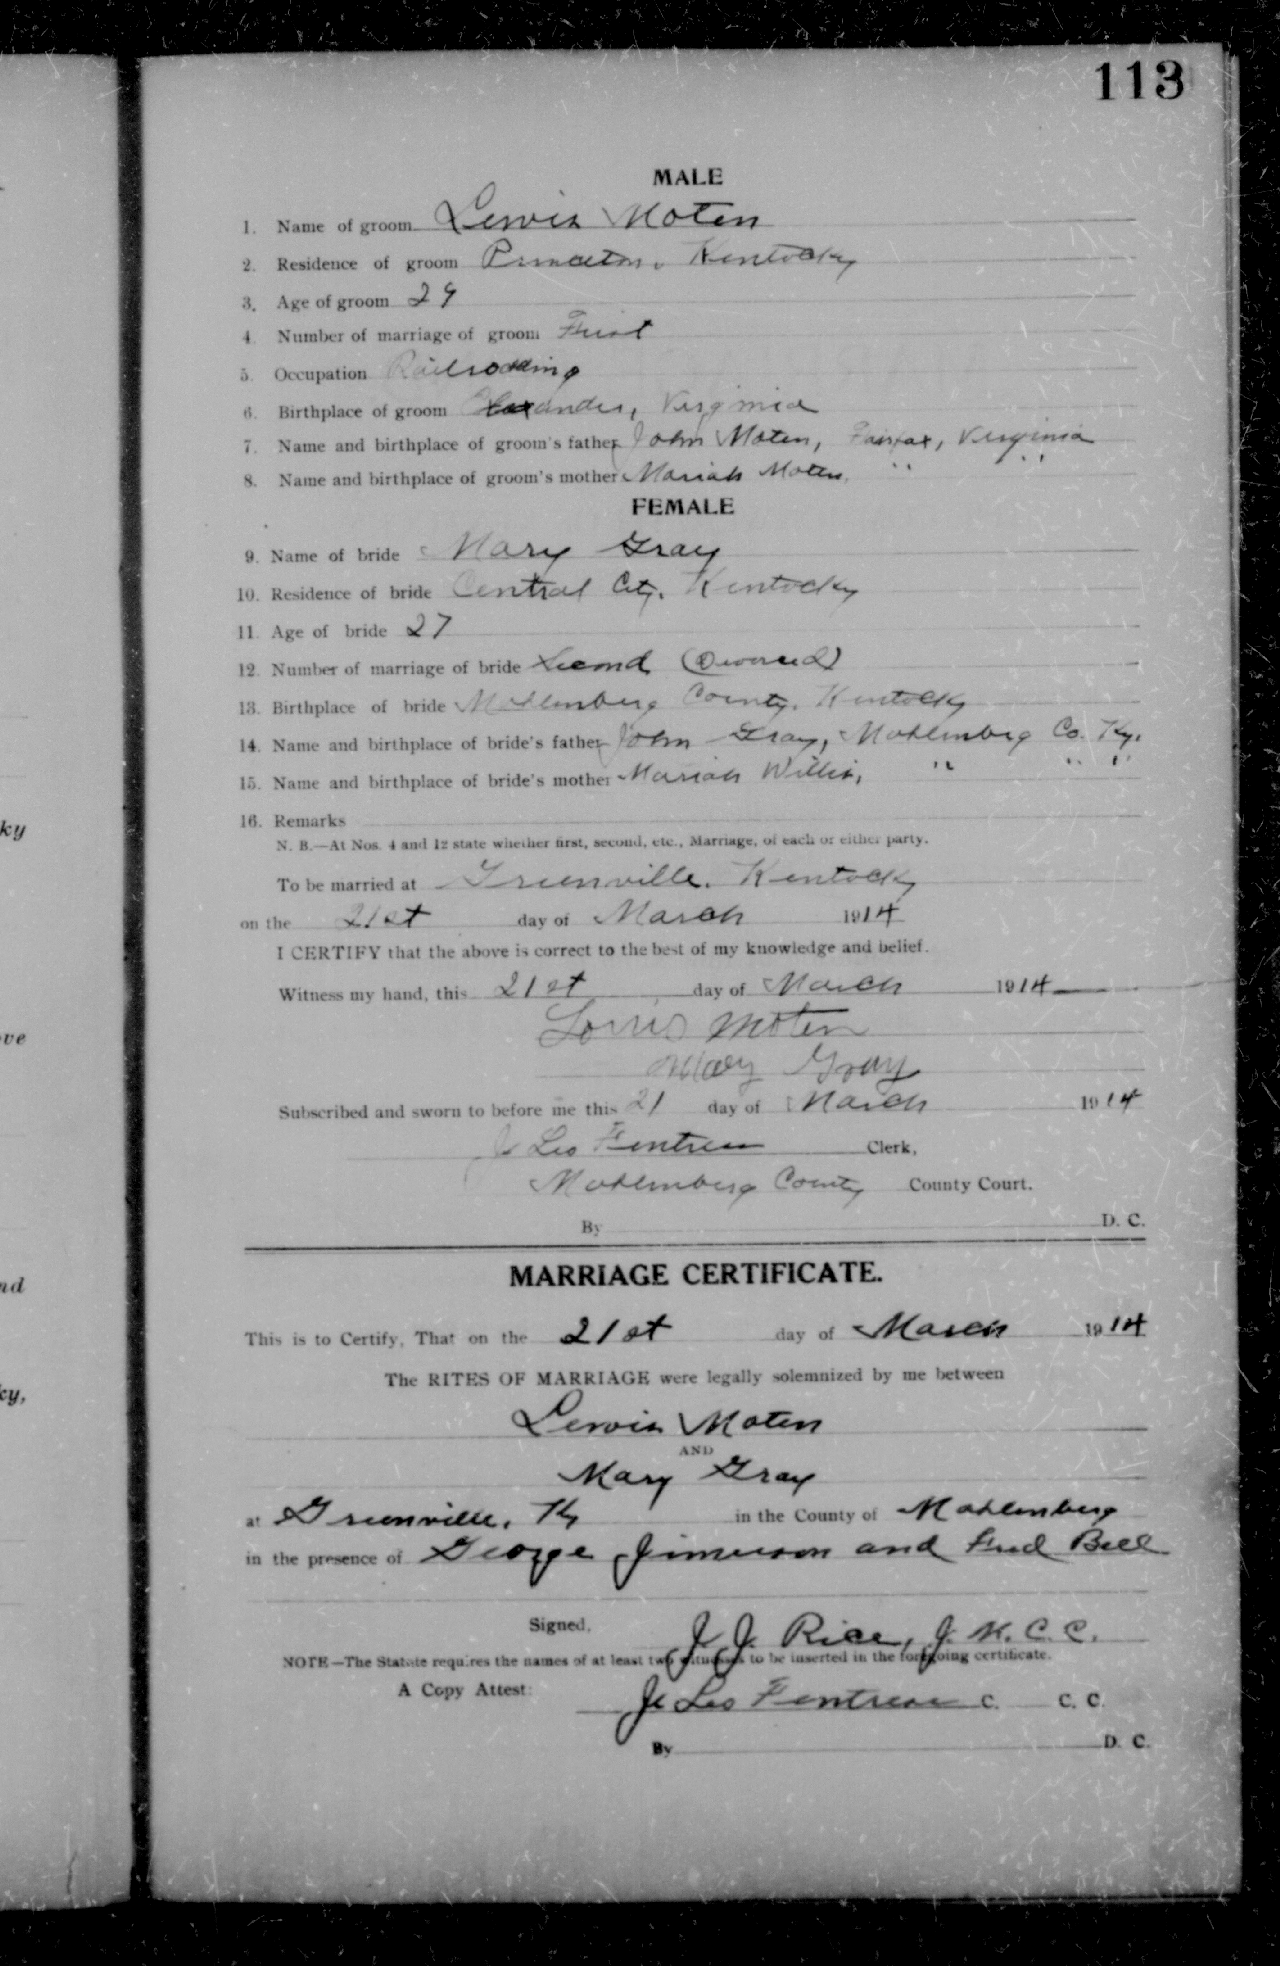 113
MALE
1. Name of groom Lewis Moten
2. Residence of groom Princeton, Kentucky
3. Age of groom 29
4. Number of marriage of groom First
5. Occupation Railroading
6. Birthplace of groom Alexander, Virginia
7. Name and birthplace of groom's father John Moten, Fairfax, Virginia
8. Name and birthplace of groom's mother Mariah Moten, " "
FEMALE
9. Name of bride Mary Gray
10. Residence of bride Central City, Kentucky
11. Age of bride 27
12. Number of marriage of bride Second (Divorced)
13. Birthplace of bride Muhlenberg County, Kentucky
14. Name and birthplace of bride's father John Gray, Muhlenberg Co. Ky.
15. Name and birthplace of bride's mother Mariah Willis, " " "
16. Remarks
N. B.—At Nos. 4 and 12 state whether first, second, etc., Marriage, of each or either party.
To be married at Greenville, Kentucky
on the 21st day of March 1914
I CERTIFY that the above is correct to the best of my knowledge and belief.
Witness my hand, this 21st day of March 1914
Louis Moten
Mary Gray
Subscribed and sworn to before me this 21 day of March 1914
J Leo Fentress Clerk,
Muhlenberg County County Court.
By D. C.
MARRIAGE CERTIFICATE.
This is to Certify, That on the 21st day of March 1914
The RITES OF MARRIAGE were legally solemnized by me between
Lewis Moten
AND
Mary Gray
at Greenville, Ky in the County of Muhlenberg
in the presence of George Jimerson and Fred Bell
Signed, J. J. Rice, J. M. C. C.
NOTE—The Statute requires the names of at least two witnesses to be inserted in the foregoing certificate.
A Copy Attest: J Leo Fentress C. C. C.
By D. C.
ky
ove
nd
ky,